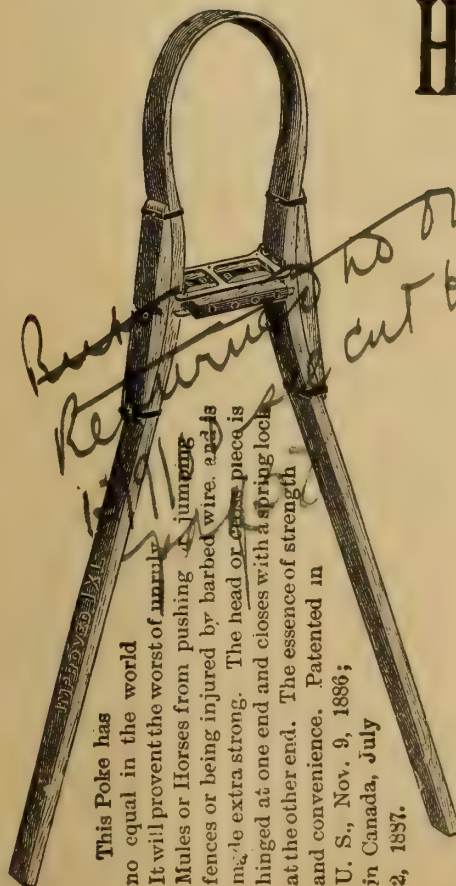 H
This Poke has
no equal in the world
It will provent the worst of unruly
Mules or Horses from pushing jumping
fences or being injured by barbed wire. and is
made extra strong. The head or cross piece is
hinged at one end and closes with a spring lock
at the other end. The essence of strength
and convenience. Patented in
U. S., Nov. 9, 1886;
in Canada, July
2, 1887.
Returned no
cut